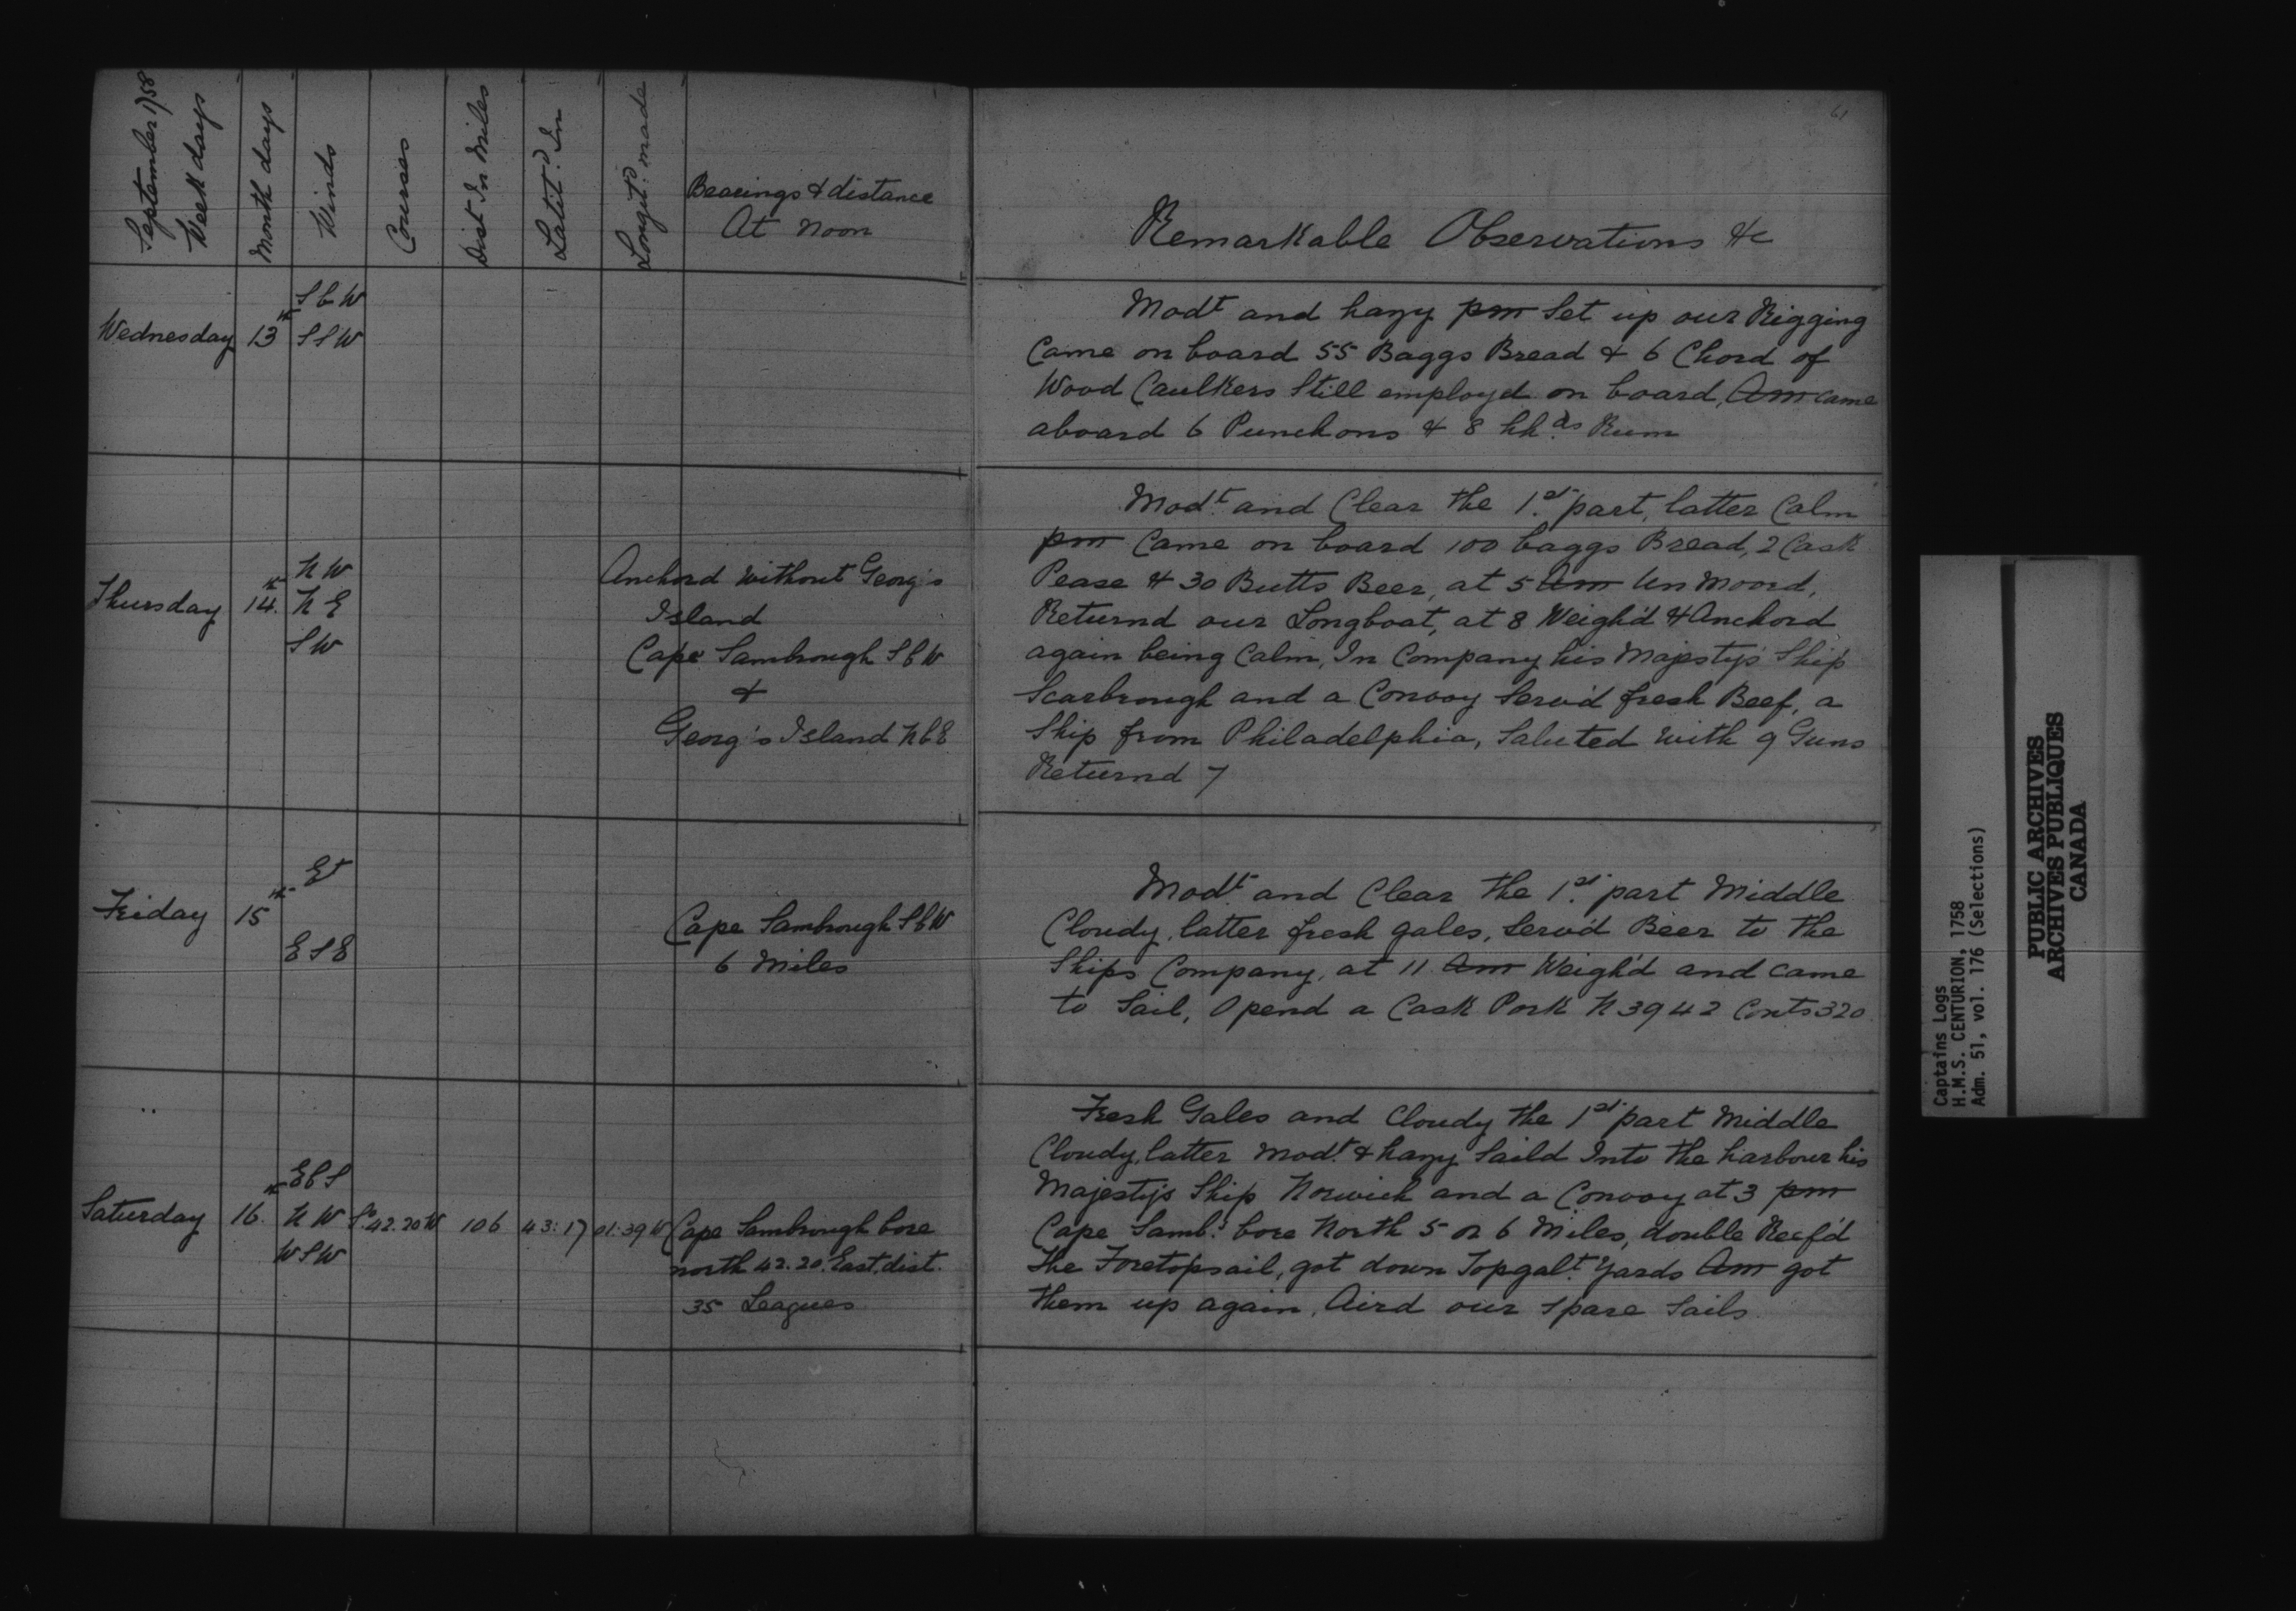 61
September 1758
Week days
Month days
Winds
Courses
Dist In Miles
Latitd. In
Longitd. made
Bearings & distance
At Noon
Remarkable Observations &c
Wednesday 13th
S b W
S S W
Modt and hazy pm Set up our Rigging
Came on board 55 Baggs Bread & 6 Chord of
Wood Caulkers Still employd on board, Am came
aboard 6 Punchons & 8 hhds Rum
Thursday 14th
N W
N E
S W
Anchord without Georg's
Island
Cape Sambrough S b W
&
Georg's Island N b E
Modt. and Clear the 1st. part, latter Calm
pm Came on board 100 baggs Bread, 2 Cask
Pease & 30 Butts Beer, at 5 Am Un Moord,
Returnd our Longboat, at 8 Weigh'd & Anchord
again being Calm, In Company his Majestys Ship
Scarbrough and a Convoy Serv'd fresh Beef, a
Ship from Philadelphia, Saluted with 9 Guns
Returnd 7
Friday 15th
Et
E S E
Cape Sambrough S b W
6 Miles
Modt. and Clear the 1st. part Middle
Cloudy, latter fresh gales, Serv'd Beer to the
Ships Company, at 11 Am Weigh'd and came
to Sail, Opend a Cask Pork N 3942 Conts 320
Saturday 16th
E b S
N W
W S W
So 42.20 W 106 43:17 01:39 W
Cape Sambrough bore
north 42.20. East, dist.
35 Leagues
Fresh Gales and Cloudy the 1st. part Middle
Cloudy, latter Modt. & hazy Saild Into the harbour his
Majestys Ship Norwich and a Convoy at 3 pm
Cape Samb: bore North 5 or 6 Miles, double Reef'd
the Foretopsail, got down Topgalt. Yards Am got
them up again, Aird our Spare Sails
Captains Logs
H.M.S. CENTURION, 1758
Adm. 51, vol. 176 (Selections)
PUBLIC ARCHIVES
ARCHIVES PUBLIQUES
CANADA